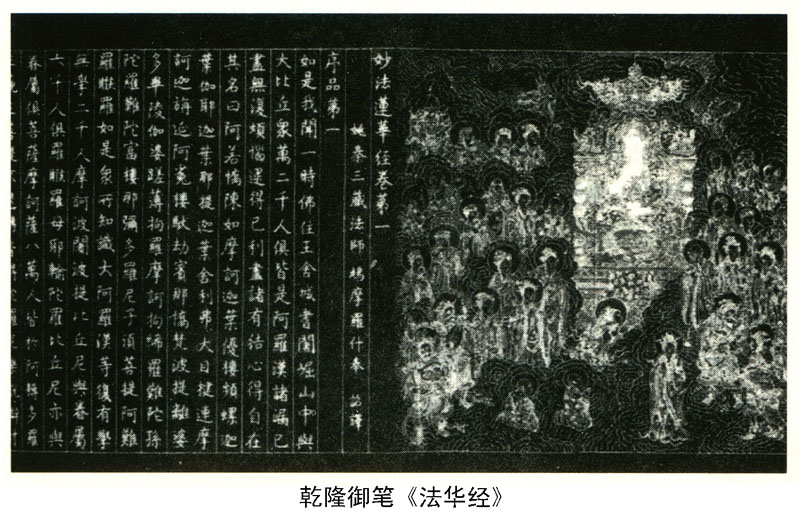 妙法蓮華經卷第一
姚秦三藏法師鳩摩羅什奉 詔譯
序品第一
如是我聞一時佛住王舍城耆闍崛山中與
大比丘眾萬二千人俱皆是阿羅漢諸漏已
盡無復煩惱逮得己利盡諸有結心得自在
其名曰阿若憍陳如摩訶迦葉優樓頻螺迦
葉伽耶迦葉那提迦葉舍利弗大目揵連摩
訶迦旃延阿㝹樓馱劫賓那憍梵波提離婆
多畢陵伽婆蹉薄拘羅摩訶拘絺羅難陀孫
陀羅難陀富樓那彌多羅尼子須菩提阿難
羅睺羅如是眾所知識大阿羅漢等復有學
無學二千人摩訶波闍波提比丘尼與眷屬
六千人俱羅睺羅母耶輸陀羅比丘尼亦與
眷屬俱菩薩摩訶薩八萬人皆於阿耨多羅
乾隆御笔《法华经》